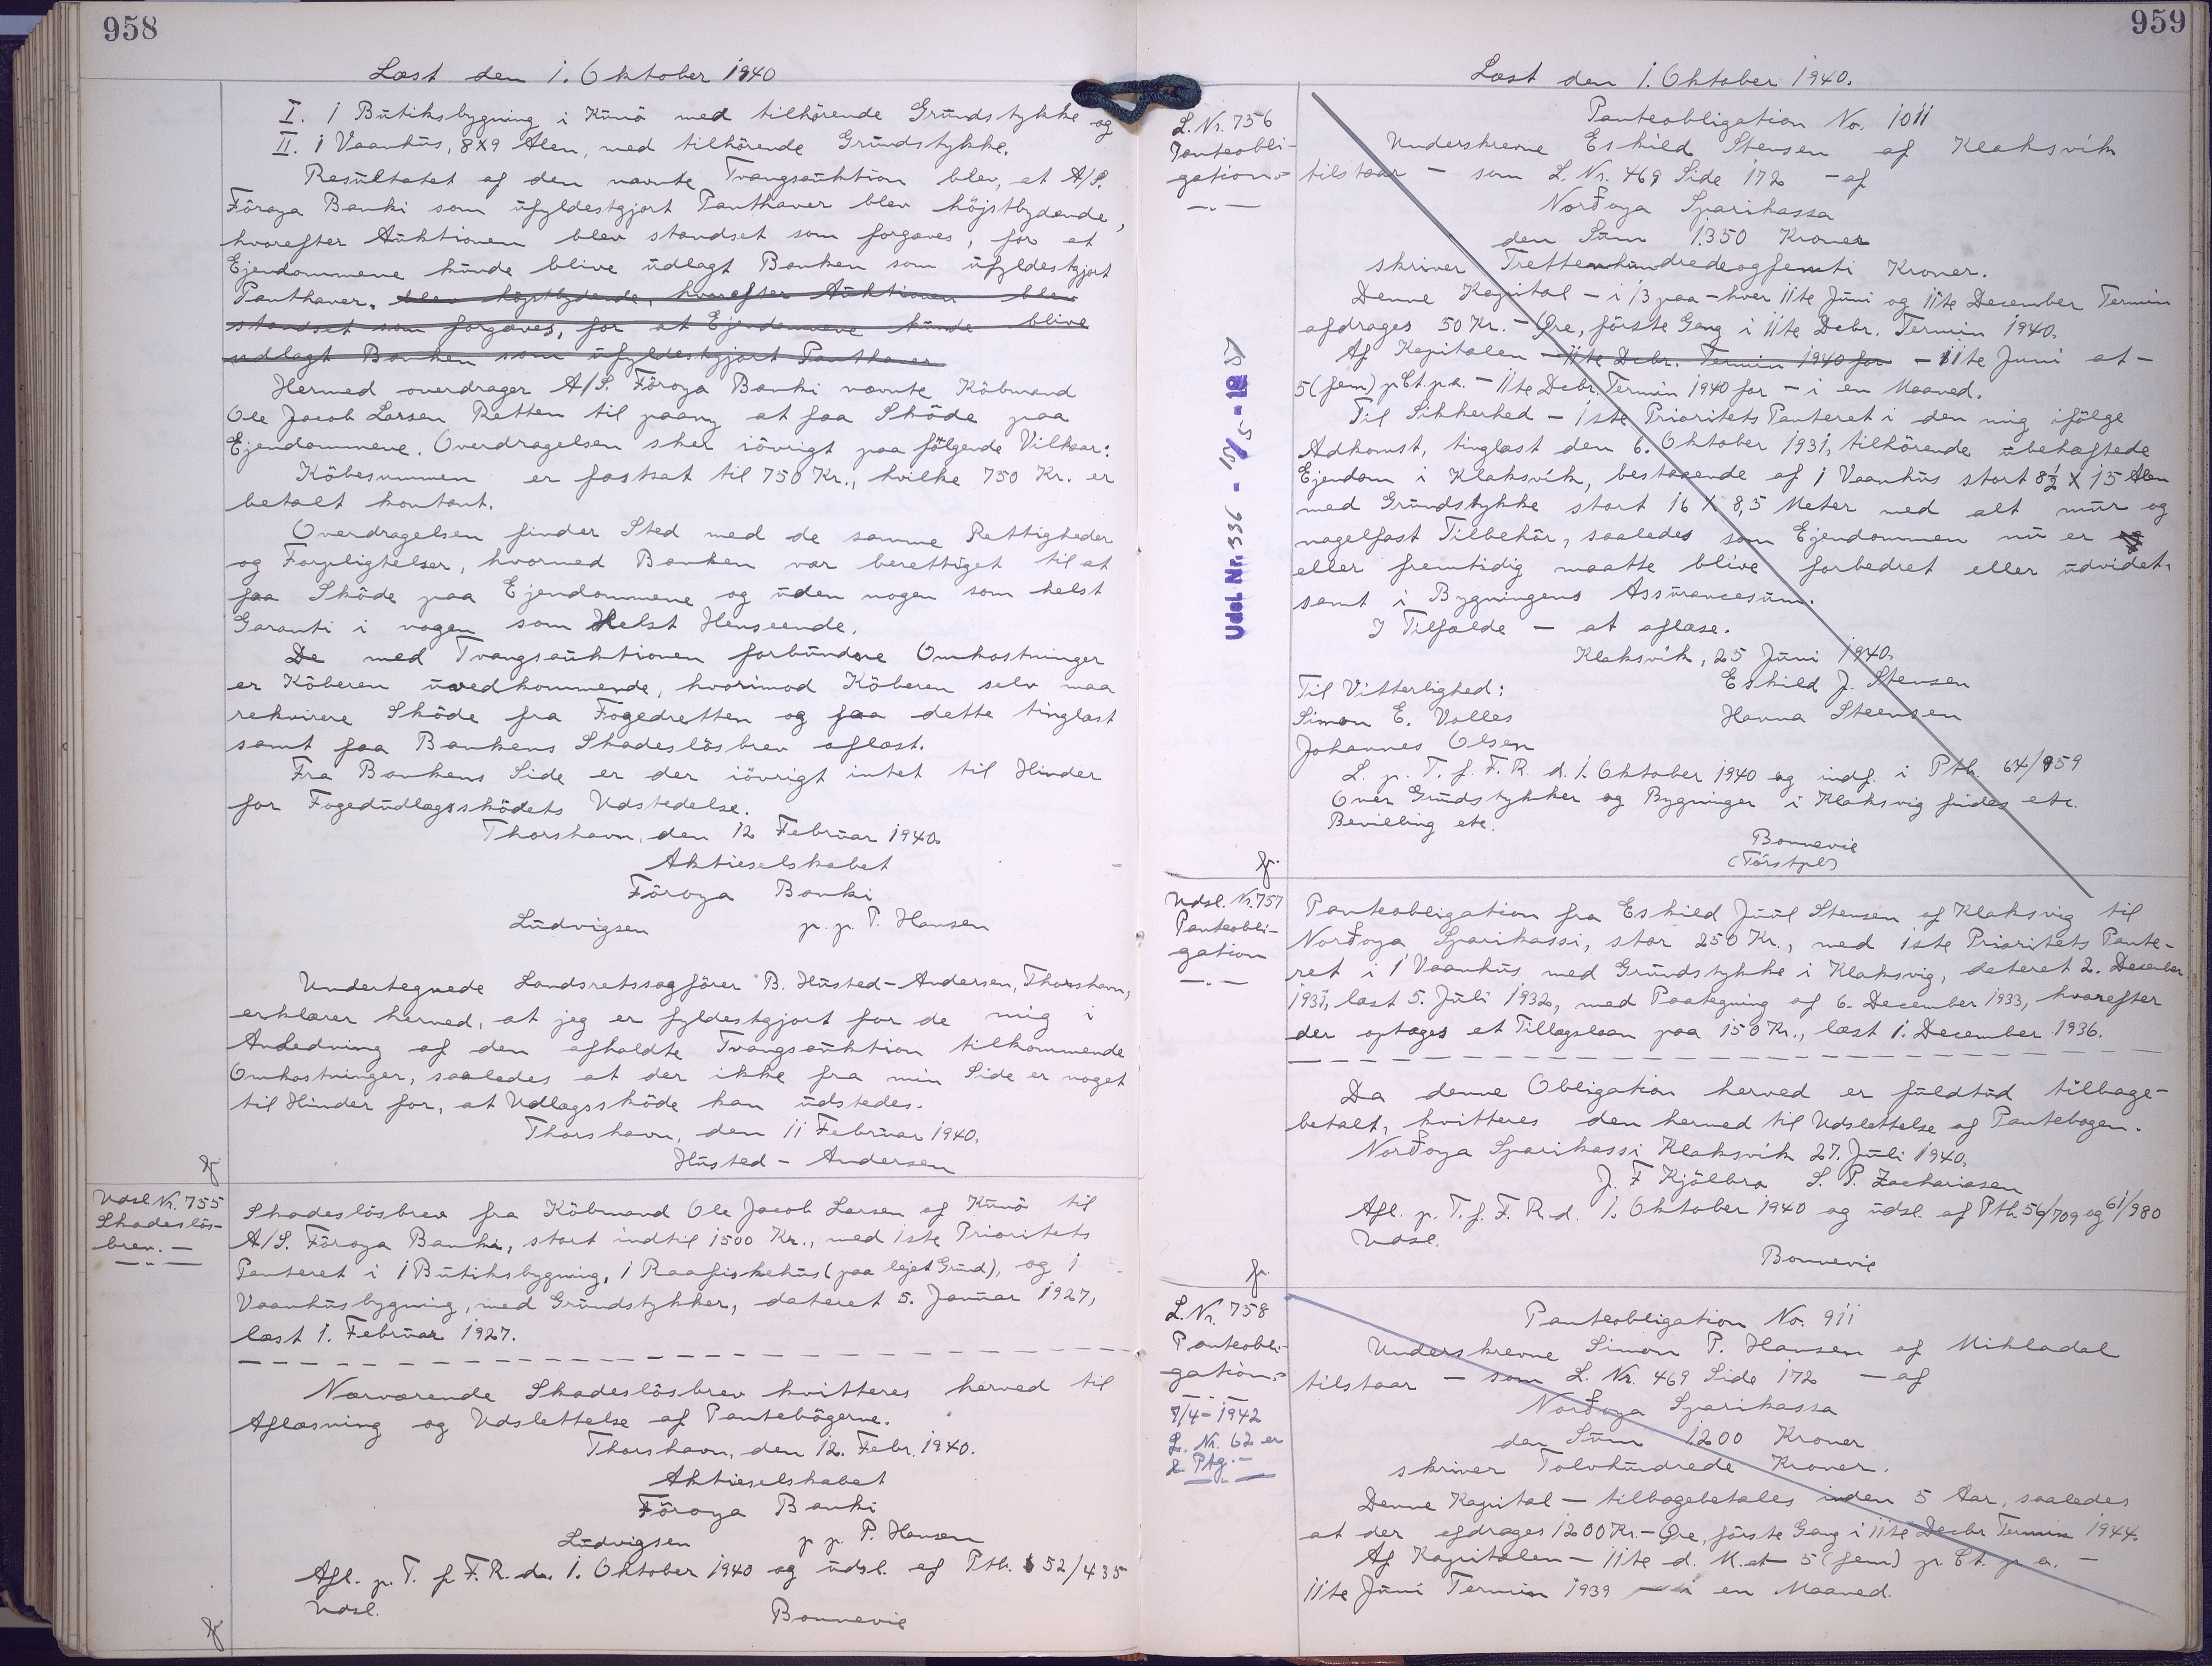 958
Læst den 1. Oktober 1940
I. 1 Butiksbygning i Kunö med tilhörende Grundstykke og
II. 1 Vaanhus, 8x9 Alen, med tilhörende Grundstykke.
Resultatet af den nævnte Tvangsauktion blev, at A/S.
Föroya Banki som ufyldestgjort Panthaver blev höjstbydende,
hvorefter Auktionen blev standset som forgæves, for at
Ejendommene kunde blive udlagt Banken som ufyldestgjort
Panthaver. blev höjstbydende, hvorefter Auktionen blev
standset som forgæves, for at Ejendommene kunde blive
udlagt Banken som ufyldestgjort Panthaver
Hermed overdrager A/S. Föroya Banki nævnte Köbmand
Ole Jacob Larsen Retten til paany at faa Sköde paa
Ejendommene. Overdragelsen sker iövrigt paa fölgende Vilkaar:
Köbesummen er fastsat til 750 Kr., hvilke 750 Kr. er
betalt kontant.
Overdragelsen finder Sted med de samme Rettigheder
og Forpligtelser, hvormed Banken var berettiget til at
faa Sköde paa Ejendommene og uden nogen som helst
Garanti i nogen som Helst Henseende.
De med Tvangsauktionen forbundne Omkostninger
er Köberen uvedkommende, hvorimod Köberen selv maa
rekvirere Sköde fra Fogedretten og faa dette tinglæst
samt faa Bankens Skadeslösbrev aflæst.
Fra Bankens Side er der iövrigt intet til Hinder
for Fogedudlægssködets Udstedelse.
Thorshavn, den 12 Februar 1940.
Aktieselskabet
Föroya Banki
Ludvigsen p. p. P. Hansen
Undertegnede Landsretssagförer B. Husted-Andersen, Thorshavn,
erklærer herved, at jeg er fyldestgjort for de mig i
Anledning af den afholdte Tvangsauktion tilkommende
Omkostninger, saaledes at der ikke fra min Side er noget
til Hinder for, at Udlægssköde kan udstedes.
Thorshavn, den 11 Februar 1940.
Husted - Andersen
fr
Udsl. Nr. 755
Skadeslös-
brev. —
Skadeslösbrev fra Köbmand Ole Jacob Larsen af Kunö til
A/S. Föroya Banki, stort indtil 1500 Kr., med 1ste Prioritets
Panteret i 1 Butiksbygning, 1 Raafiskehus (paa lejet Grund), og 1
Vaanhusbygning, med Grundstykker, dateret 5. Januar 1927,
læst 1. Februar 1927.
Nærværende Skadeslösbrev kvitteres herved til
Aflæsning og Udslettelse af Pantebögerne.
Thorshavn, den 12. Febr. 1940.
Aktieselskabet
Föroya Banki
Ludvigsen p p. P. Hansen
Afl. p. T. f. F. R. d. 1. Oktober 1940 og udsl. af Ptb. 52/435
Udsl.
Bonnevie
fr
959
Læst den 1. Oktober 1940.
L. Nr. 756
Panteobli-
gation.-
Udsl. Nr. 336 - 15/5-1951
Panteobligation No. 1011
Underskrevne Eskild Stensen af Klaksvík
tilstaar - som L. Nr. 469 Side 172 - af
Norðoya Sparikassa
den Sum 1.350 Kroner
skriver Trettenhundredeogfemti Kroner.
Denne Kapital - i 13 paa - hver 11te Juni og 11te December Termin
afdrages 50 Kr. - Øre, förste Gang i 11te Debr. Termin 1940.
Af Kapitalen - 11te Debr. Termin 1940 for - 11te Juni at -
5 (fem) pCt. p.a. - 11te Debr. Termin 1940 for - i en Maaned.
Til Sikkerhed - 1ste Prioritets Panteret i den mig ifölge
Adkomst, tinglæst den 6. Oktober 1931, tilhörende ubehæftede
Ejendom i Klaksvík, bestaaende af 1 Vaanhus stort 8½ X 15 Alen
med Grundstykke stort 16 X 8,5 Meter med alt mur og
nagelfast Tilbehör, saaledes som Ejendommen nu er
eller fremtidig maatte blive forbedret eller udvidet,
samt i Bygningens Assurancesum.
I Tilfælde - at aflæse.
Klaksvík, 25 Juni 1940.
Til Vitterlighed: Eskild J. Stensen
Simon E. Volles Hanna Steensen
Johannes Olsen
L. p. T. f. F. R. d. 1. Oktober 1940 og indf. i Ptb. 64/959
Over Grundstykker og Bygninger i Klaksvig findes etc.
Bevilling etc.
Bonnevie
fr.
Udsl. Nr. 757
Panteobli-
gation
Panteobligation fra Eskild Juul Stensen af Klaksvig til
Norðoya Sparikassi, stor 250 Kr., med 1ste Prioritets Pante-
ret i 1 Vaanhus med Grundstykke i Klaksvig, dateret 2. December
1931, læst 5. Juli 1932, med Paategning af 6. December 1933, hvorefter
der optages et Tillægslaan paa 150 Kr., læst 1. December 1936.
Da denne Obligation herved er fuldtud tilbage-
betalt, kvitteres den hermed til Udslettelse af Pantebogen.
Norðoya Sparikassi Klaksvík 27. Juli 1940.
J. F Kjölbro S. P. Zachariasen
Afl. p. T. f. F. R. d. 1. Oktober 1940 og udsl. af Ptb. 56/709 og 61/980
Udsl.
Bonnevie
fr.
L. Nr. 758
Panteobli-
gation.-
7/4-1942
L. Nr. 62 er
L. Ptg. -
Panteobligation No. 911
Underskrevne Simon P. Hansen af Mikladal
tilstaar - som L. Nr. 469 Side 172 - af
Norðoya Sparikassa
den Sum 1200 Kroner
skriver Tolvhundrede Kroner.
Denne Kapital - tilbagebetales inden 5 Aar, saaledes
at der afdrages 1200 Kr. - Øre, förste Gang i 11te Decbr Termin 1944.
Af Kapitalen - 11te d. M. at 5 (fem) p. Ct. p a. -
11te Juni Termin 1939 - i en Maaned.